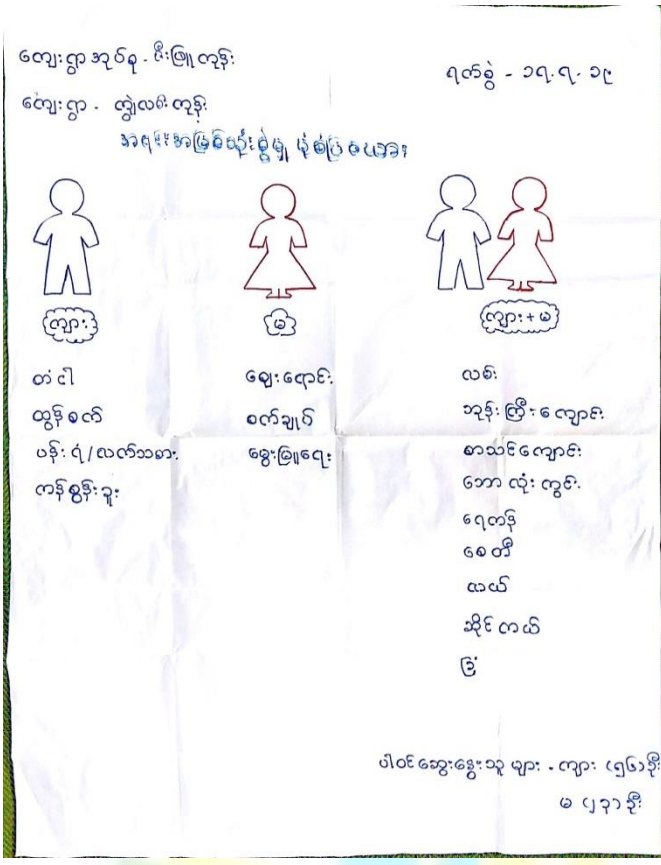 ကျေးရွာအုပ်စု - ဇီးဖြူကုန်း
ရက်စွဲ - ၁၇.၇.၁၉
ကျေးရွာ - ကျွဲလမ်းကုန်း
အရင်းအမြစ်သုံးစွဲမှု ပုံစံပြဇယား
ကျား
မ
ကျား+မ
တံငါ
ထွန်စက်
ပန်းရံ/လက်သမား
ကန်စွန်းခူး
ဈေးရောင်း
စက်ချုပ်
မွေးမြူရေး
လမ်း
ဘုန်းကြီးကျောင်း
စာသင်ကျောင်း
ဘောလုံးကွင်း
ရေကန်
စေတီ
လယ်
ဆိုင်ကယ်
ခြံ
ပါဝင်ဆွေးနွေးသူများ - ကျား (၅၆)ဦး
မ (၂၃)ဦး